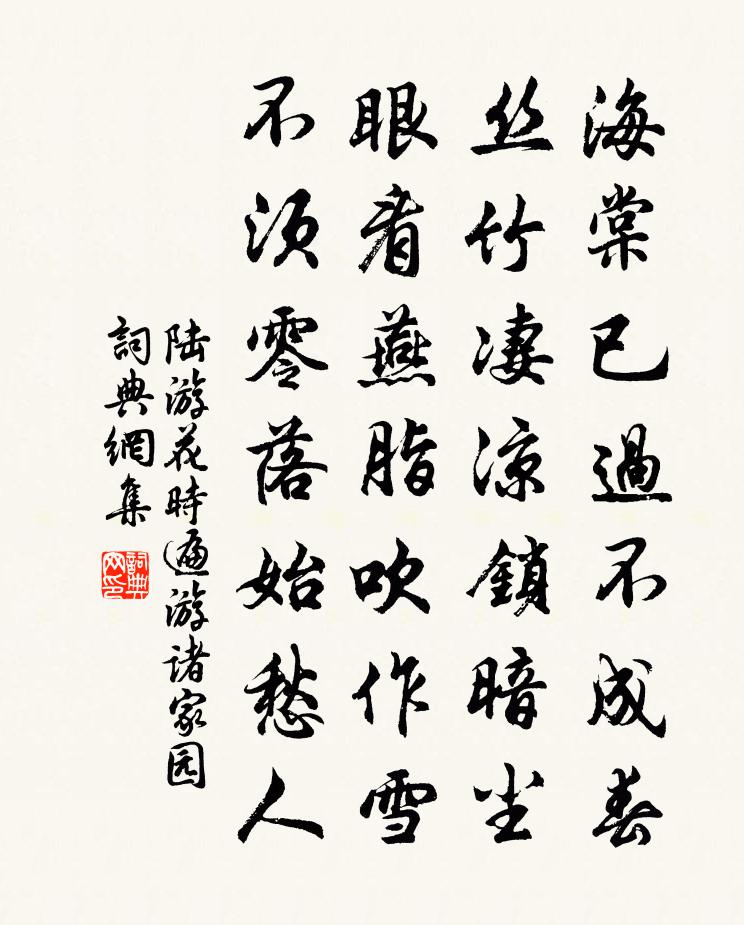 海棠已過不成春
丝竹凄涼鎖暗尘
眼看燕脂吹作雪
不须零落始愁人
陆游花時遍游诸家园
詞典網集
詞典網印